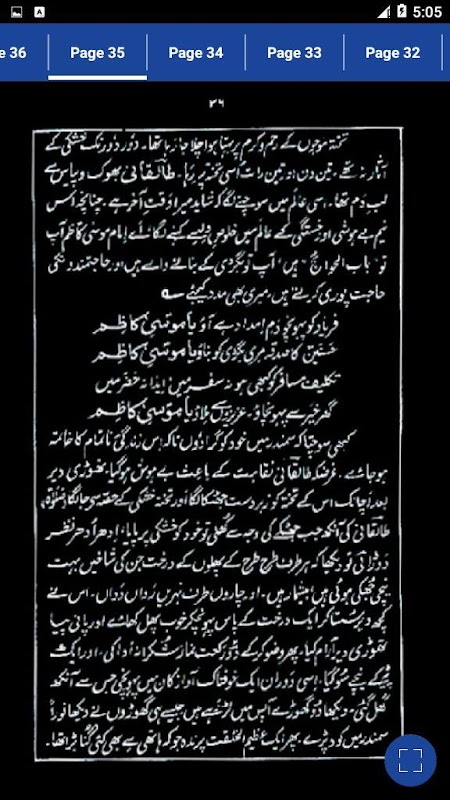 5:05
e 36
Page 35
Page 34
Page 33
Page 32
۳۶
تختہ موجوں کے رحم و کرم پر بہتا ہوا چلا جا رہا تھا۔ دُور دُور تک خشکی کے
آثار نہ تھے، تین دن اور تین رات اُسی تختہ پر رہا۔ طالقانی بھوک و پیاس سے
لبِ دَم تھا۔ اسی عالم میں سوچنے لگا کہ شاید میرا وقتِ آخر ہے، چنانچہ اُس
نیم بے ہوشی اور خستگی کے عالم میں خلوصِ دل سے کہنے لگا اے امام موسیٰ کاظم آپ
تو "باب الحوائج" ہیں آپ تو بگڑی کے بنانے والے ہیں اور حاجتمندوں کی
حاجت پوری کرتے ہیں، میری بھی مدد کیجئے
فریاد کو پہونچو دمِ امداد ہے آؤ یا موسیٰ کاظم
حسنین کا صدقہ مری بگڑی کو بناؤ یا موسیٰ کاظم
تکلیف مسافر کو کبھی ہو نہ سفر میں ایذا نہ حضر میں
گھر خیر سے پہونچاؤ، عزیزوں سے ملاؤ یا موسیٰ کاظم
کبھی سوچتا کہ سمندر میں خود کو گرا دوں تاکہ اس زندگی نا تمام کا خاتمہ
ہو جائے، غرضکہ طالقانی نقاہت کے باعث بے ہوش ہو گیا، تھوڑی دیر
بعد اچانک اس کے تختہ کو زبردست جھٹکا لگا اور تختہ خشکی کے حصہ سے جا لگا
طالقانی کی آنکھ جب جھٹکے کی وجہ سے کھلی تو خود کو خشکی پر پایا، اِدھر اُدھر نظر
دوڑائی تو دیکھا کہ ہر طرف طرح طرح کے پھلوں کے درخت جن کی شاخیں بہت
نیچی جھکی ہوئی ہیں، اور چاروں طرف نہریں رواں دواں۔ اس نے
کچھ دیر کے پاس پہونچکر خوب پھل کھائے اور پانی پیا
تھوڑی دیر آرام کیا، پھر وضو کر کے دو رکعت نماز شکرانہ ادا کی، اور ایک
کے نیچے سو گیا، اسی دوران ایک خوفناک آواز کان میں پہونچی جس سے آنکھ
کھل گئی، دیکھا دو گھوڑے آپس میں لڑ رہے ہیں جیسے ہی گھوڑوں نے دیکھا فوراً
سمندر میں کود پڑے، پھر ایک عظیم الخلقت پرندہ جو کہ ہاتھی سے بھی کئی گنا بڑا تھا۔